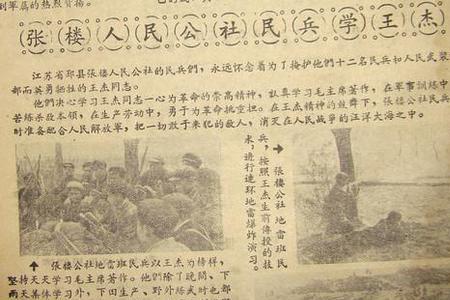 到军属的热烈赞扬。
张楼人民公社民兵学王杰
江苏省邳县张楼人民公社的民兵們，永远怀念着为了掩护他們十二名民兵和人民武装
部而英勇牺牲的王杰同志。
他們决心学习王杰同志一心为革命的崇高精神，认真学习毛主席著作，在军事訓练中
苦练杀敌本领，在生产劳动中，勇于为革命挑重担。在王杰精神的鼓舞下，张楼公社民兵
时准备配合人民解放軍，把一切敢于来犯的敌人，消灭在人民战爭的汪洋大海之中。
→张楼公社地雷班民
兵，按照王杰生前传授的技
术，进行連环地雷爆炸演习。
↑ 张楼公社地雷班民兵以王杰为榜样，
坚持天天学习毛主席著作。他們除了晚間、下
雨天集体学习外，下田生产、野外练武时也都